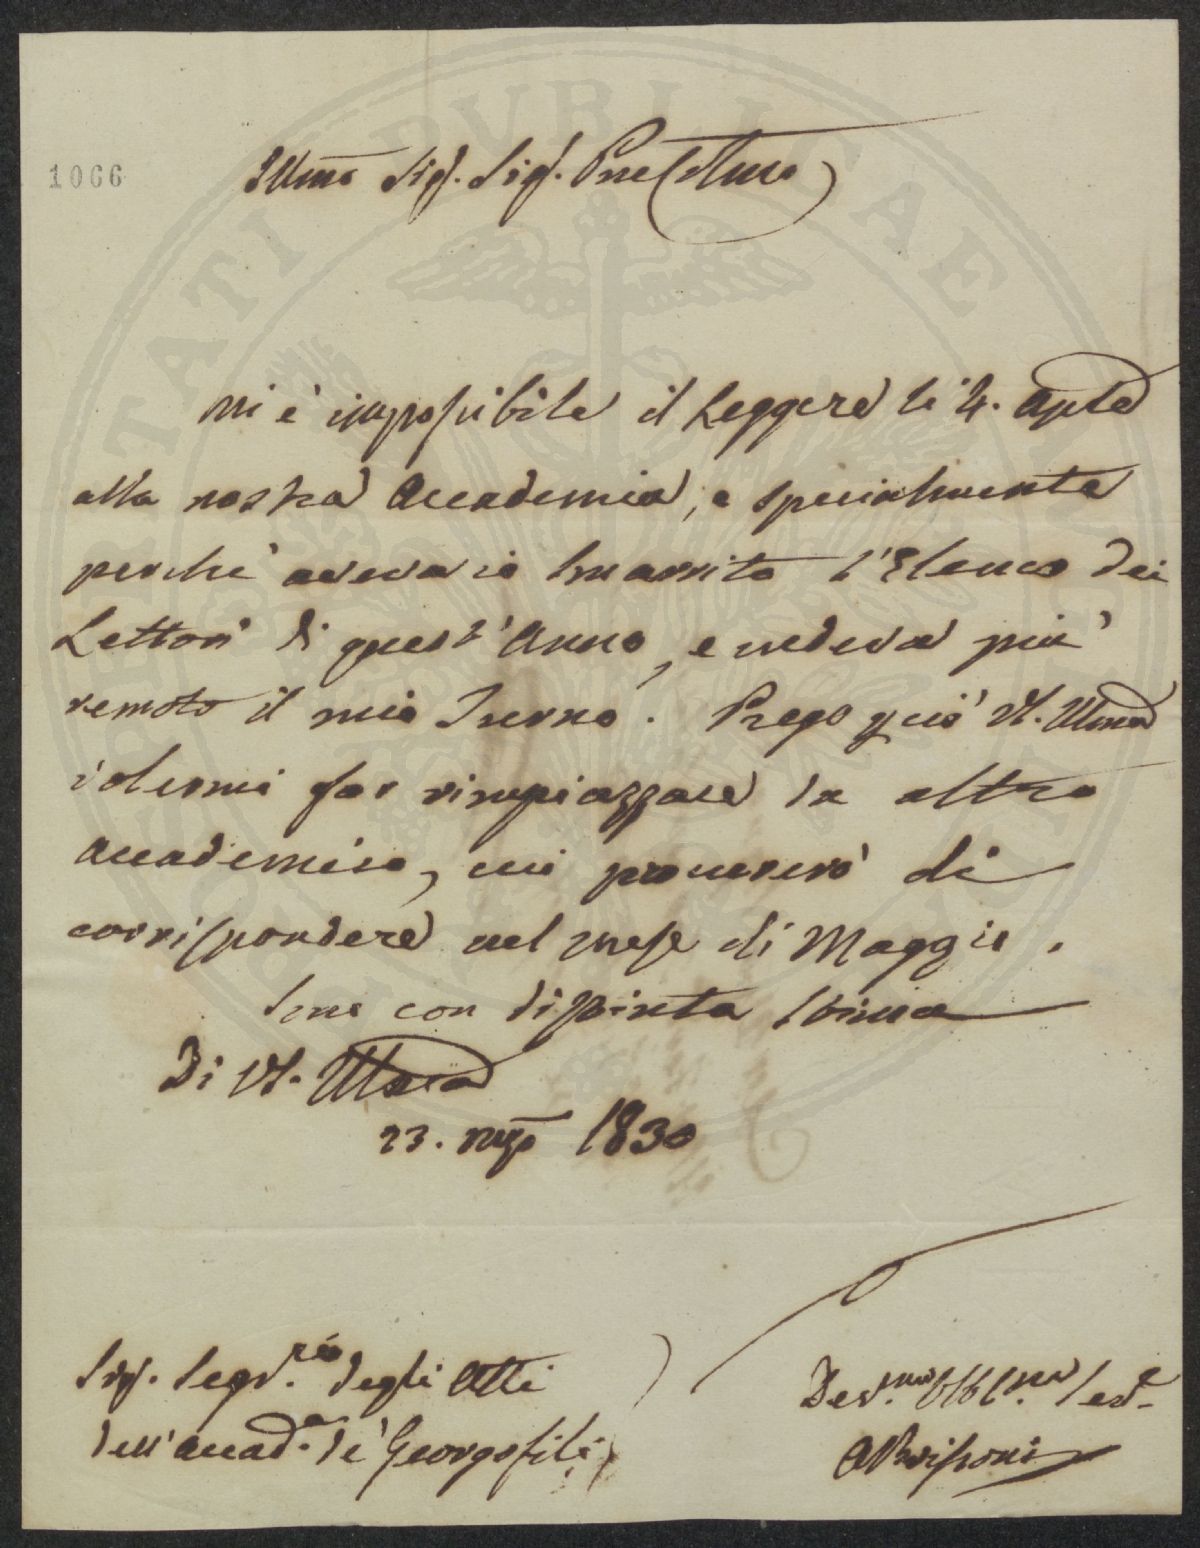 1066
Illmo Sig. Sig. Pne Colmo
Mi è impossibile il Leggere li 4. Aple
alla nostra Accademia, e specialmente
perchè aveva io smarrito l'Elenco dei
Lettori di quest'Anno, e vedeva più
remoto il mio Turno. Prego perciò VS. Illma
volermi far rimpiazzare da altro
Accademico, cui procurerò di
corrispondere nel mese di Maggio.
Sono con distinta stima
Di VS. Illma
23. Mzo 1830
Sig. Segr.rio degli Atti
dell'Accad.a de' Georgofili
Dev.mo Obbl.mo Serv.e